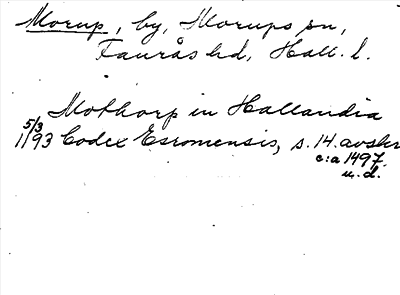 Morup, by, Morups sn,
Faurås hd, Hall. l.
Mothorp in Hallandia
5/3 1193 Codex Esromensis, s. 14. avskr
c:a 1497.
u. d.